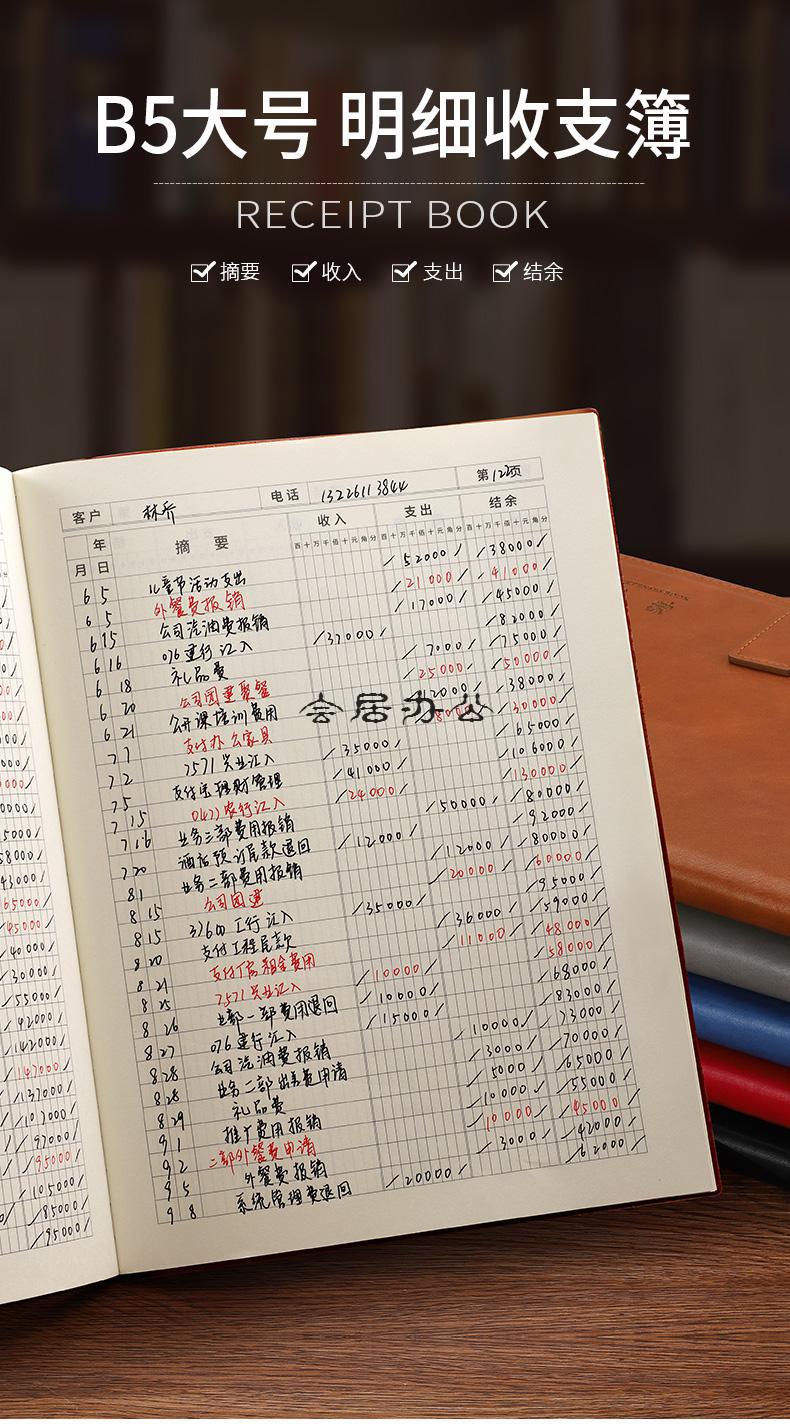 B5大号 明细收支簿
RECEIPT BOOK
摘要 收入 支出 结余
客户 林乔 电话 13226113844 第122页
年 摘要 收入 支出 结余
月 日 百十万千佰十元角分 百十万千佰十元角分 百十万千佰十元角分
6 5 儿童节活动支出 52000 38000
6 5 外餐费报销 21000 41000
6 15 公司汽油费报销 17000 45000
6 16 076建行汇入 37000 82000
6 18 礼品费 7000 75000
6 20 公司团建聚餐 25000 50000
6 21 公开课培训费用 12000 38000
7 1 支付办公家具 8000 30000
7 2 7571兴业汇入 35000 65000
7 5 支付宝理财管理 41000 106000
7 15 0417农行汇入 24000 130000
7 16 业务三部费用报销 50000 80000
7 20 酒店预订尾款退回 12000 92000
8 1 业务二部费用报销 12000 80000
8 15 公司团建 20000 60000
8 15 31600工行汇入 35000 95000
8 20 支付工程尾款 36000 59000
8 21 支付厂房租金费用 11000 48000
8 25 7571兴业汇入 10000 58000
8 26 业部一部费用退回 10000 68000
8 27 076建行汇入 15000 83000
8 28 公司汽油费报销 10000 73000
8 28 业务二部出差费申请 3000 70000
8 29 礼品费 5000 65000
9 1 推广费用报销 10000 55000
9 2 二部外餐费申请 10000 45000
9 5 外餐费报销 3000 42000
9 8 系统管理费退回 20000 62000
会居办公